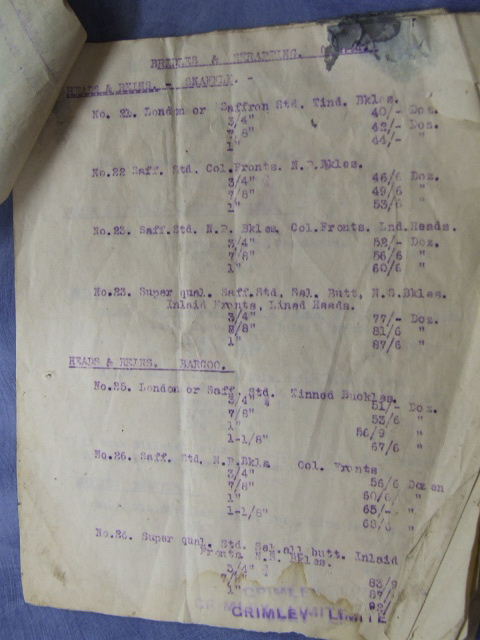 BRIDLES &
HEADS & REINS. - SNAFFLE. -
No. 21. London or Saffron Std. Tind. Bkles.
3/4" 40/- Doz.
7/8" 42/- Doz.
1" 44/- "
No.22 Saff. Std. Col.Fronts. N.P.Bkles.
3/4" 46/6 Doz.
7/8" 49/6 "
1" 53/6 "
No.23. Saff.Std. N.P. Bkles. Col.Fronts. Lnd.Heads.
3/4" 52/- Doz.
7/8" 56/6 "
1" 60/6 "
No.23. Super qual. Saff.Std, Sel. Butt, N.S.Bkles.
Inlaid Fronts, Lined Heads.
3/4" 77/- Doz.
7/8" 81/6 "
1" 87/6 "
HEADS & REINS. BARCOO.
No.25. London or Saff. Std. Tinned Buckles.
3/4" 51/- Doz.
7/8" 53/6 "
1" 56/9 "
1-1/8" 67/6 "
No.26. Saff. Std, N.P.Bkls Col. Fronts
3/4" 56/6 Dozen
7/8" 60/6 "
1" 65/- "
1-1/8" 68/6 "
Super qual. Std. Sel.all butt. Inlaid
Fronts N.S. Bkles.
3/4" 83/9
7/8" 87/
1"
CRIMLEY
CRIMLEY LIMITE